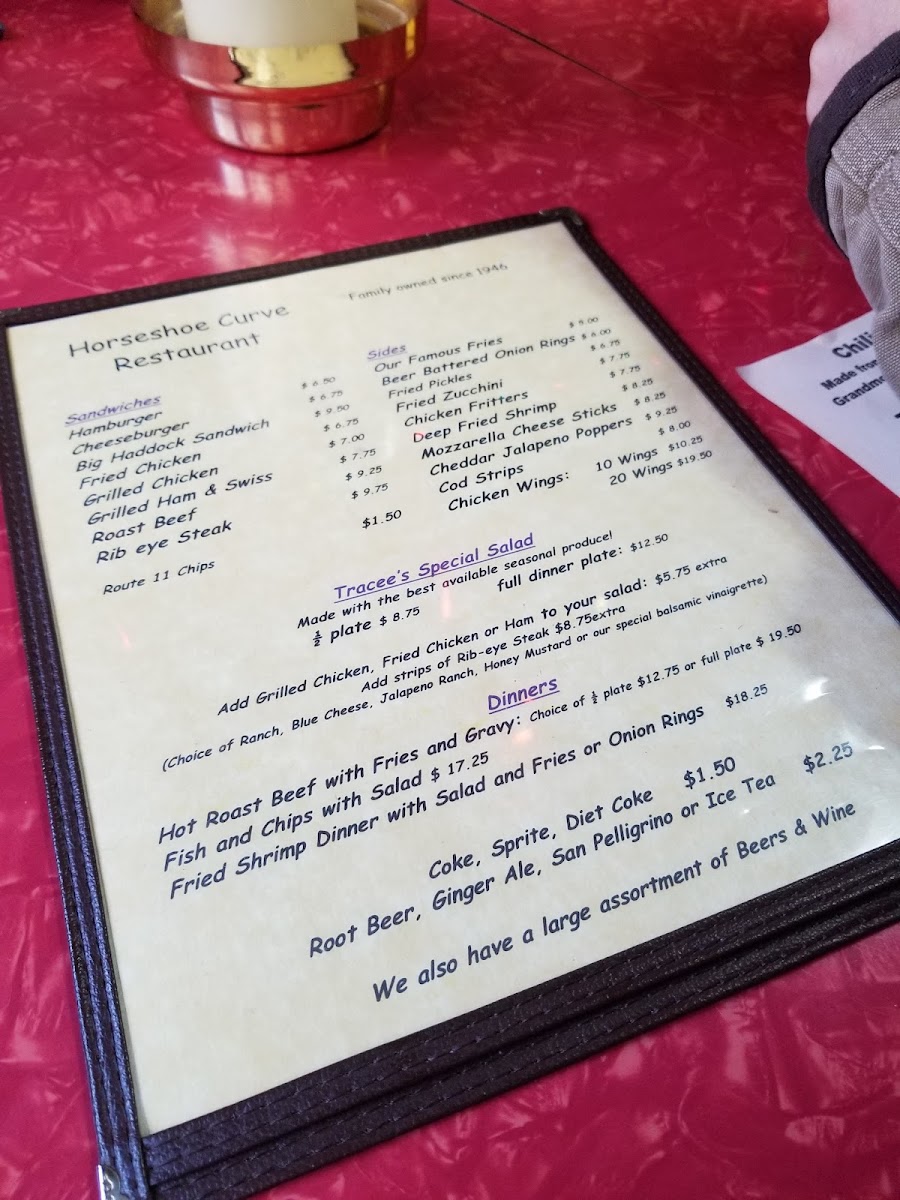 Horseshoe Curve
Restaurant
Family owned since 1946
Sandwiches
Hamburger $ 6.50
Cheeseburger $ 6.75
Big Haddock Sandwich $ 9.50
Fried Chicken $ 6.75
Grilled Chicken $ 7.00
Grilled Ham & Swiss $ 7.75
Roast Beef $ 9.25
Rib eye Steak $ 9.75
Route 11 Chips $1.50
Sides
Our Famous Fries $ 5.00
Beer Battered Onion Rings $ 6.00
Fried Pickles $ 6.75
Fried Zucchini $ 7.75
Chicken Fritters $ 7.75
Deep Fried Shrimp $ 8.25
Mozzarella Cheese Sticks $ 8.25
Cheddar Jalapeno Poppers $ 9.25
Cod Strips $ 8.00
Chicken Wings: 10 Wings $10.25
20 Wings $19.50
Tracee's Special Salad
Made with the best available seasonal produce!
½ plate $ 8.75 full dinner plate: $12.50
Add Grilled Chicken, Fried Chicken or Ham to your salad: $5.75 extra
Add strips of Rib-eye Steak $8.75extra
(Choice of Ranch, Blue Cheese, Jalapeno Ranch, Honey Mustard or our special balsamic vinaigrette)
Dinners
Hot Roast Beef with Fries and Gravy: Choice of ½ plate $12.75 or full plate $ 19.50
Fish and Chips with Salad $ 17.25
Fried Shrimp Dinner with Salad and Fries or Onion Rings $18.25
Coke, Sprite, Diet Coke $1.50
Root Beer, Ginger Ale, San Pelligrino or Ice Tea $2.25
We also have a large assortment of Beers & Wine
Made